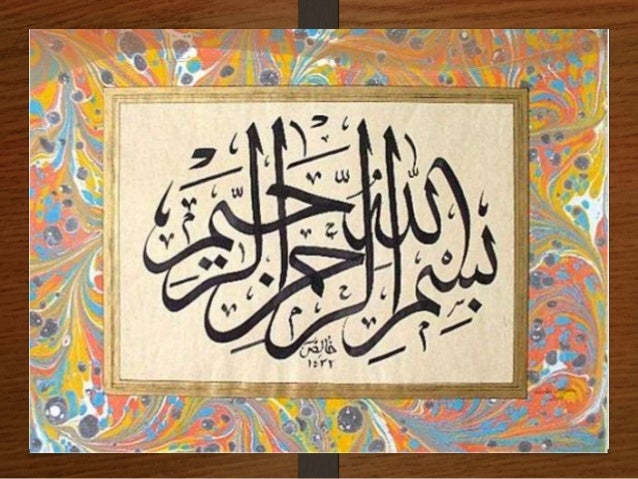 بِسْمِ اللّٰهِ الرَّحْمٰنِ الرَّحِيْمِ
خالص
١٤٣٢